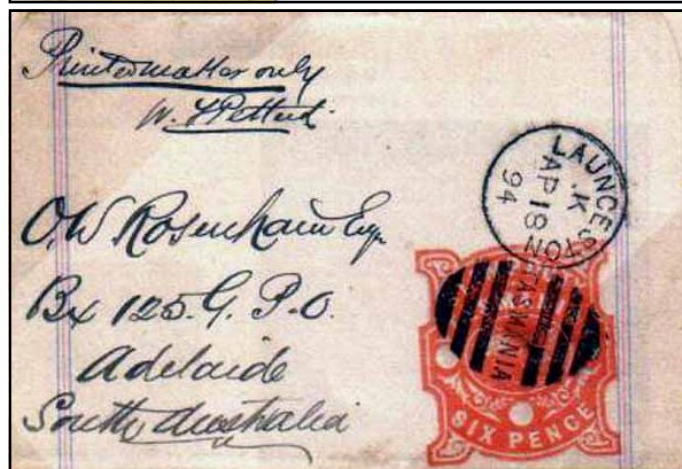 Printed matter only
W. F. Petterd
O. W. Rosenhain Esq.
Bx 125. G. P. O.
Adelaide
South Australia
LAUNCESTON
JK
AP 18
94
TASMANIA
SIX PENCE